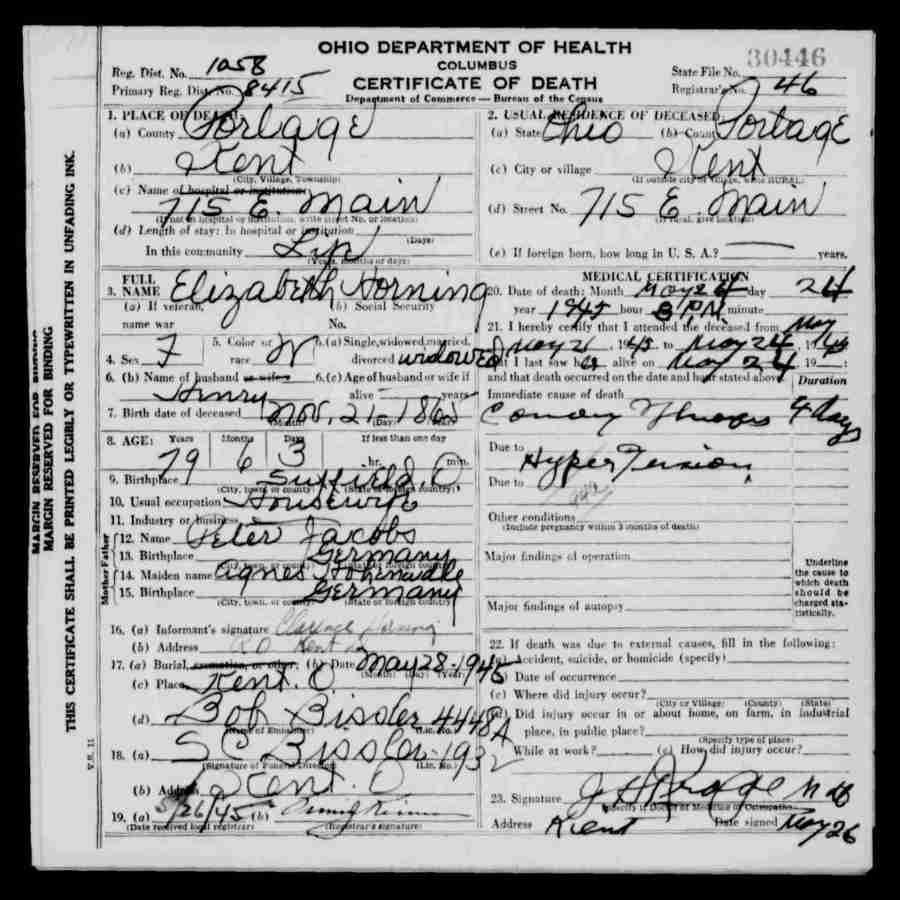 OHIO DEPARTMENT OF HEALTH
COLUMBUS
CERTIFICATE OF DEATH
Department of Commerce — Bureau of the Census
Reg. Dist. No. 1058
Primary Reg. Dist. No. 8415
30446
State File No.
Registrar's No. 46
1. PLACE OF DEATH:
(a) County Portage
(b) Kent
(City, Village, Township)
(c) Name of hospital or institution:
715 E. Main
(If not in hospital or institution, write street No. or location)
(d) Length of stay: In hospital or institution
(Days)
In this community Life
(Years, months or days)
2. USUAL RESIDENCE OF DECEASED:
(a) State Ohio (b) County Portage
(c) City or village Kent
(If outside city or village, write RURAL)
(d) Street No. 715 E. Main
(If rural, give location)
(e) If foreign born, how long in U. S. A.? years.
3. FULL NAME Elizabeth Horning
(a) If veteran, name war
(b) Social Security No.
4. Sex F 5. Color or race W 6. (a) Single, widowed, married, divorced widowed
6. (b) Name of husband or wife Henry
6. (c) Age of husband or wife if alive years
7. Birth date of deceased Nov. 21 - 1865
(Month) (Day) (Year)
8. AGE: Years Months Days If less than one day
79 6 3 hr. min.
9. Birthplace Suffield, O
(City, town or county) (State or foreign country)
10. Usual occupation Housewife
11. Industry or business
Father
12. Name Peter Jacobs
13. Birthplace Germany
(City, town, or county) (State or foreign country)
Mother
14. Maiden name Agnes
15. Birthplace Germany
(City, town, or county) (State or foreign country)
16. (a) Informant's signature Clarence Horning
(b) Address Kent
17. (a) Burial, cremation, or other; (b) Date May 28 - 1945
(Month) (Day) (Year)
(c) Place Kent. O
(d) Bob Bissler 4448A
(Name of Embalmer) (Lic. No.)
18. (a) S C Bissler - 1932
(Signature of Funeral Director) (Lic. No.)
(b) Address Kent. O
19. (a) 5/26/45 (b)
(Date received local registrar) (Registrar's signature)
MEDICAL CERTIFICATION
20. Date of death: Month May 24 day 24
year 1945 hour 8 P.M. minute
21. I hereby certify that I attended the deceased from May
May 21, 1945 to May 24, 1945
that I last saw her alive on May 24 19 ;
and that death occurred on the date and hour stated above. Duration
Immediate cause of death
Coronary Thrombosis 4 days
Due to
Hypertension
Due to
94a
Other conditions
(Include pregnancy within 3 months of death)
Major findings of operation
Major findings of autopsy
Underline the cause to which death should be charged statistically.
22. If death was due to external causes, fill in the following:
(a) Accident, suicide, or homicide (specify)
(b) Date of occurrence
(c) Where did injury occur?
(City or Village) (County) (State)
(d) Did injury occur in or about home, on farm, in industrial
place, in public place?
(Specify type of place)
While at work? (e) How did injury occur?
23. Signature
(Specify if Doctor of Medicine or Osteopath)
Address Kent Date signed May 26
MARGIN RESERVED FOR BINDING
MARGIN RESERVED FOR BINDING
THIS CERTIFICATE SHALL BE PRINTED LEGIBLY OR TYPEWRITTEN IN UNFADING INK.
V.S. 11